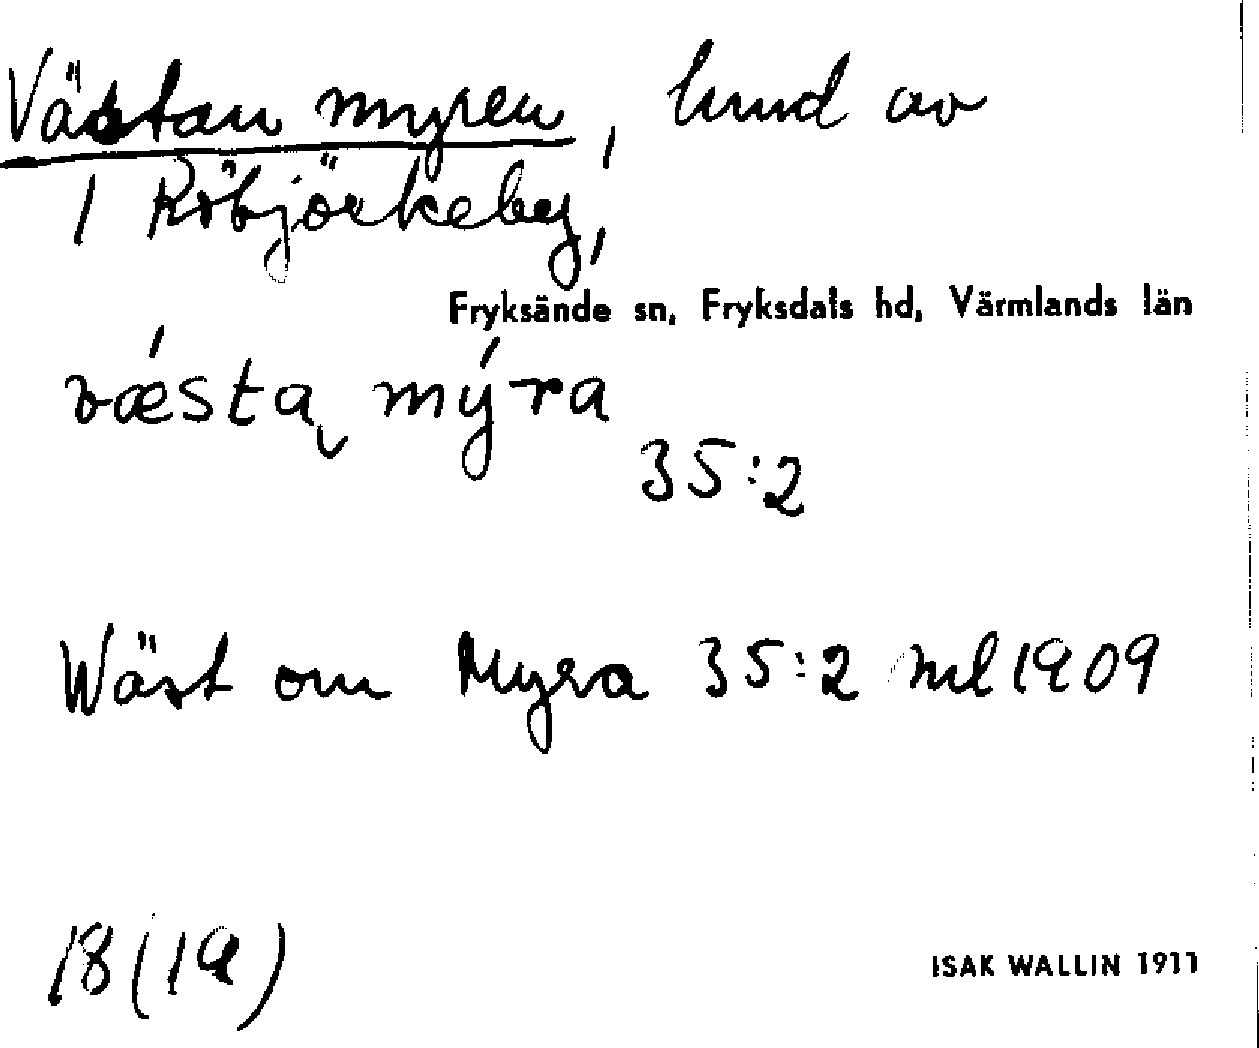 Västan myren, hmd av
1 Röbjörkeby,
Fryksände sn, Fryksdals hd, Värmlands län
vǽsta̢ mý́ra
35:2
Wäst om Myra 35:2 ml 1909
18 (19)
ISAK WALLIN 1911